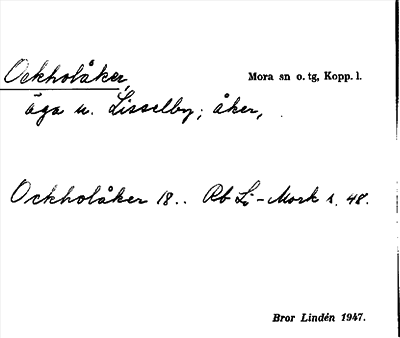 Ockholåker, Mora sn o. tg, Kopp. l.
äga u. Lisselby; åker,
Ockholåker 18.. Rb Li-Mork s. 48.
Bror Lindén 1947.